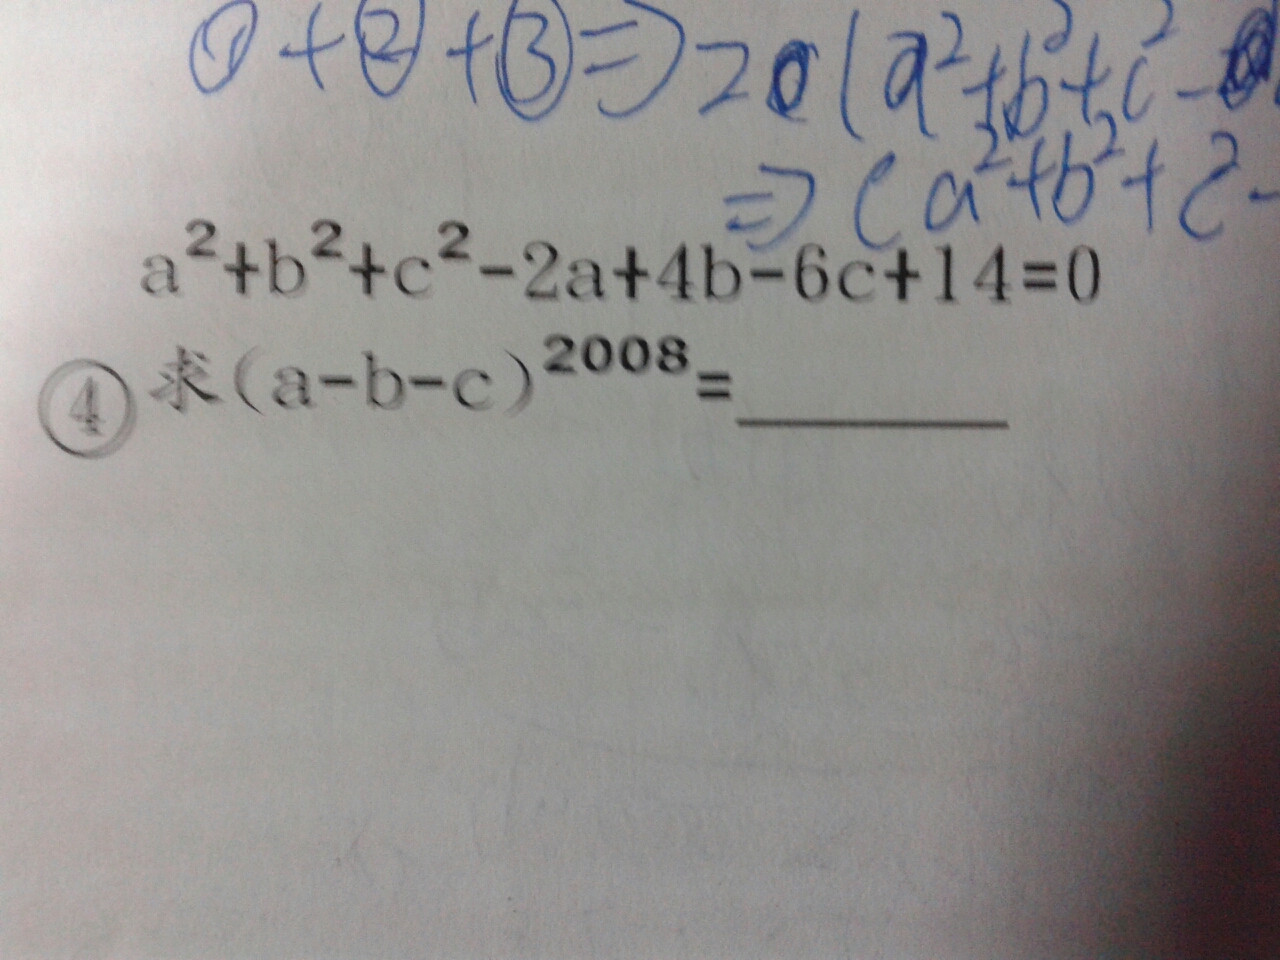 ①+②+③⇒20(a²+b²+c²-
⇒(a²+b²+c²-
a²+b²+c²-2a+4b-6c+14=0
④ 求(a-b-c)²⁰⁰⁸=